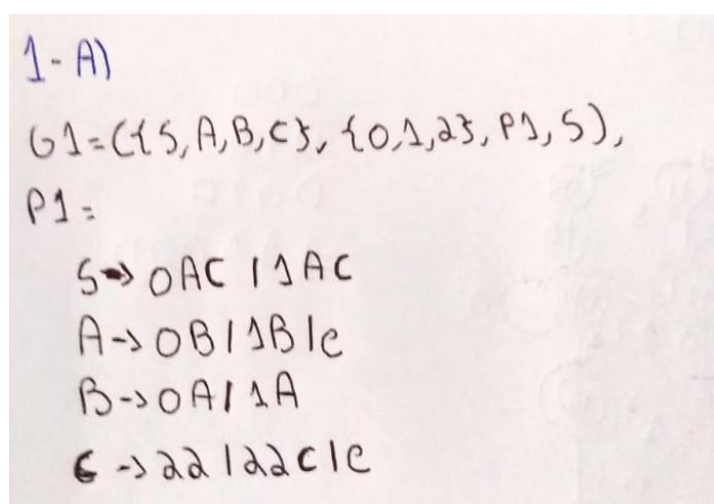 1- A)
G1=({S,A,B,C}, {0,1,2}, P1, S),
P1=
S->0AC | 1AC
A->0B | 1B | e
B->0A | 1A
C->22 | 22C | e